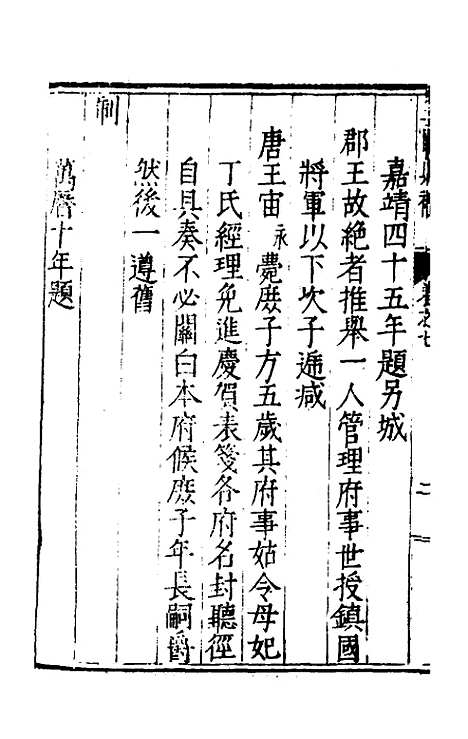 嘉靖四十五年題另城
郡王故絶者推舉一人管理府事世授鎮國
將軍以下次子遞减
唐王宙永薨庶子方五歲其府事姑令母妃
丁氏經理免進慶賀表箋各府名封聽徑
自具奏不必關白本府候庶子年長嗣爵
然後一遵舊
制
萬曆十年題